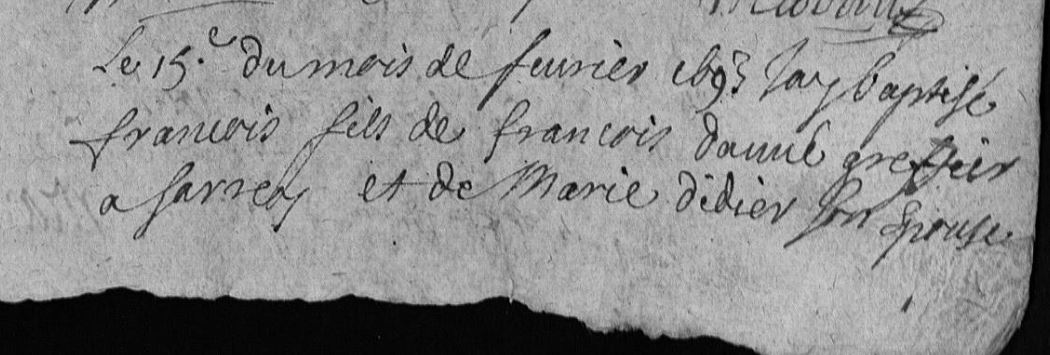 Le 15.e du mois de feurier 1693 Jay baptisé
francois fils de francois daunné greffier
a sarrey et de Marie didier son Epouse